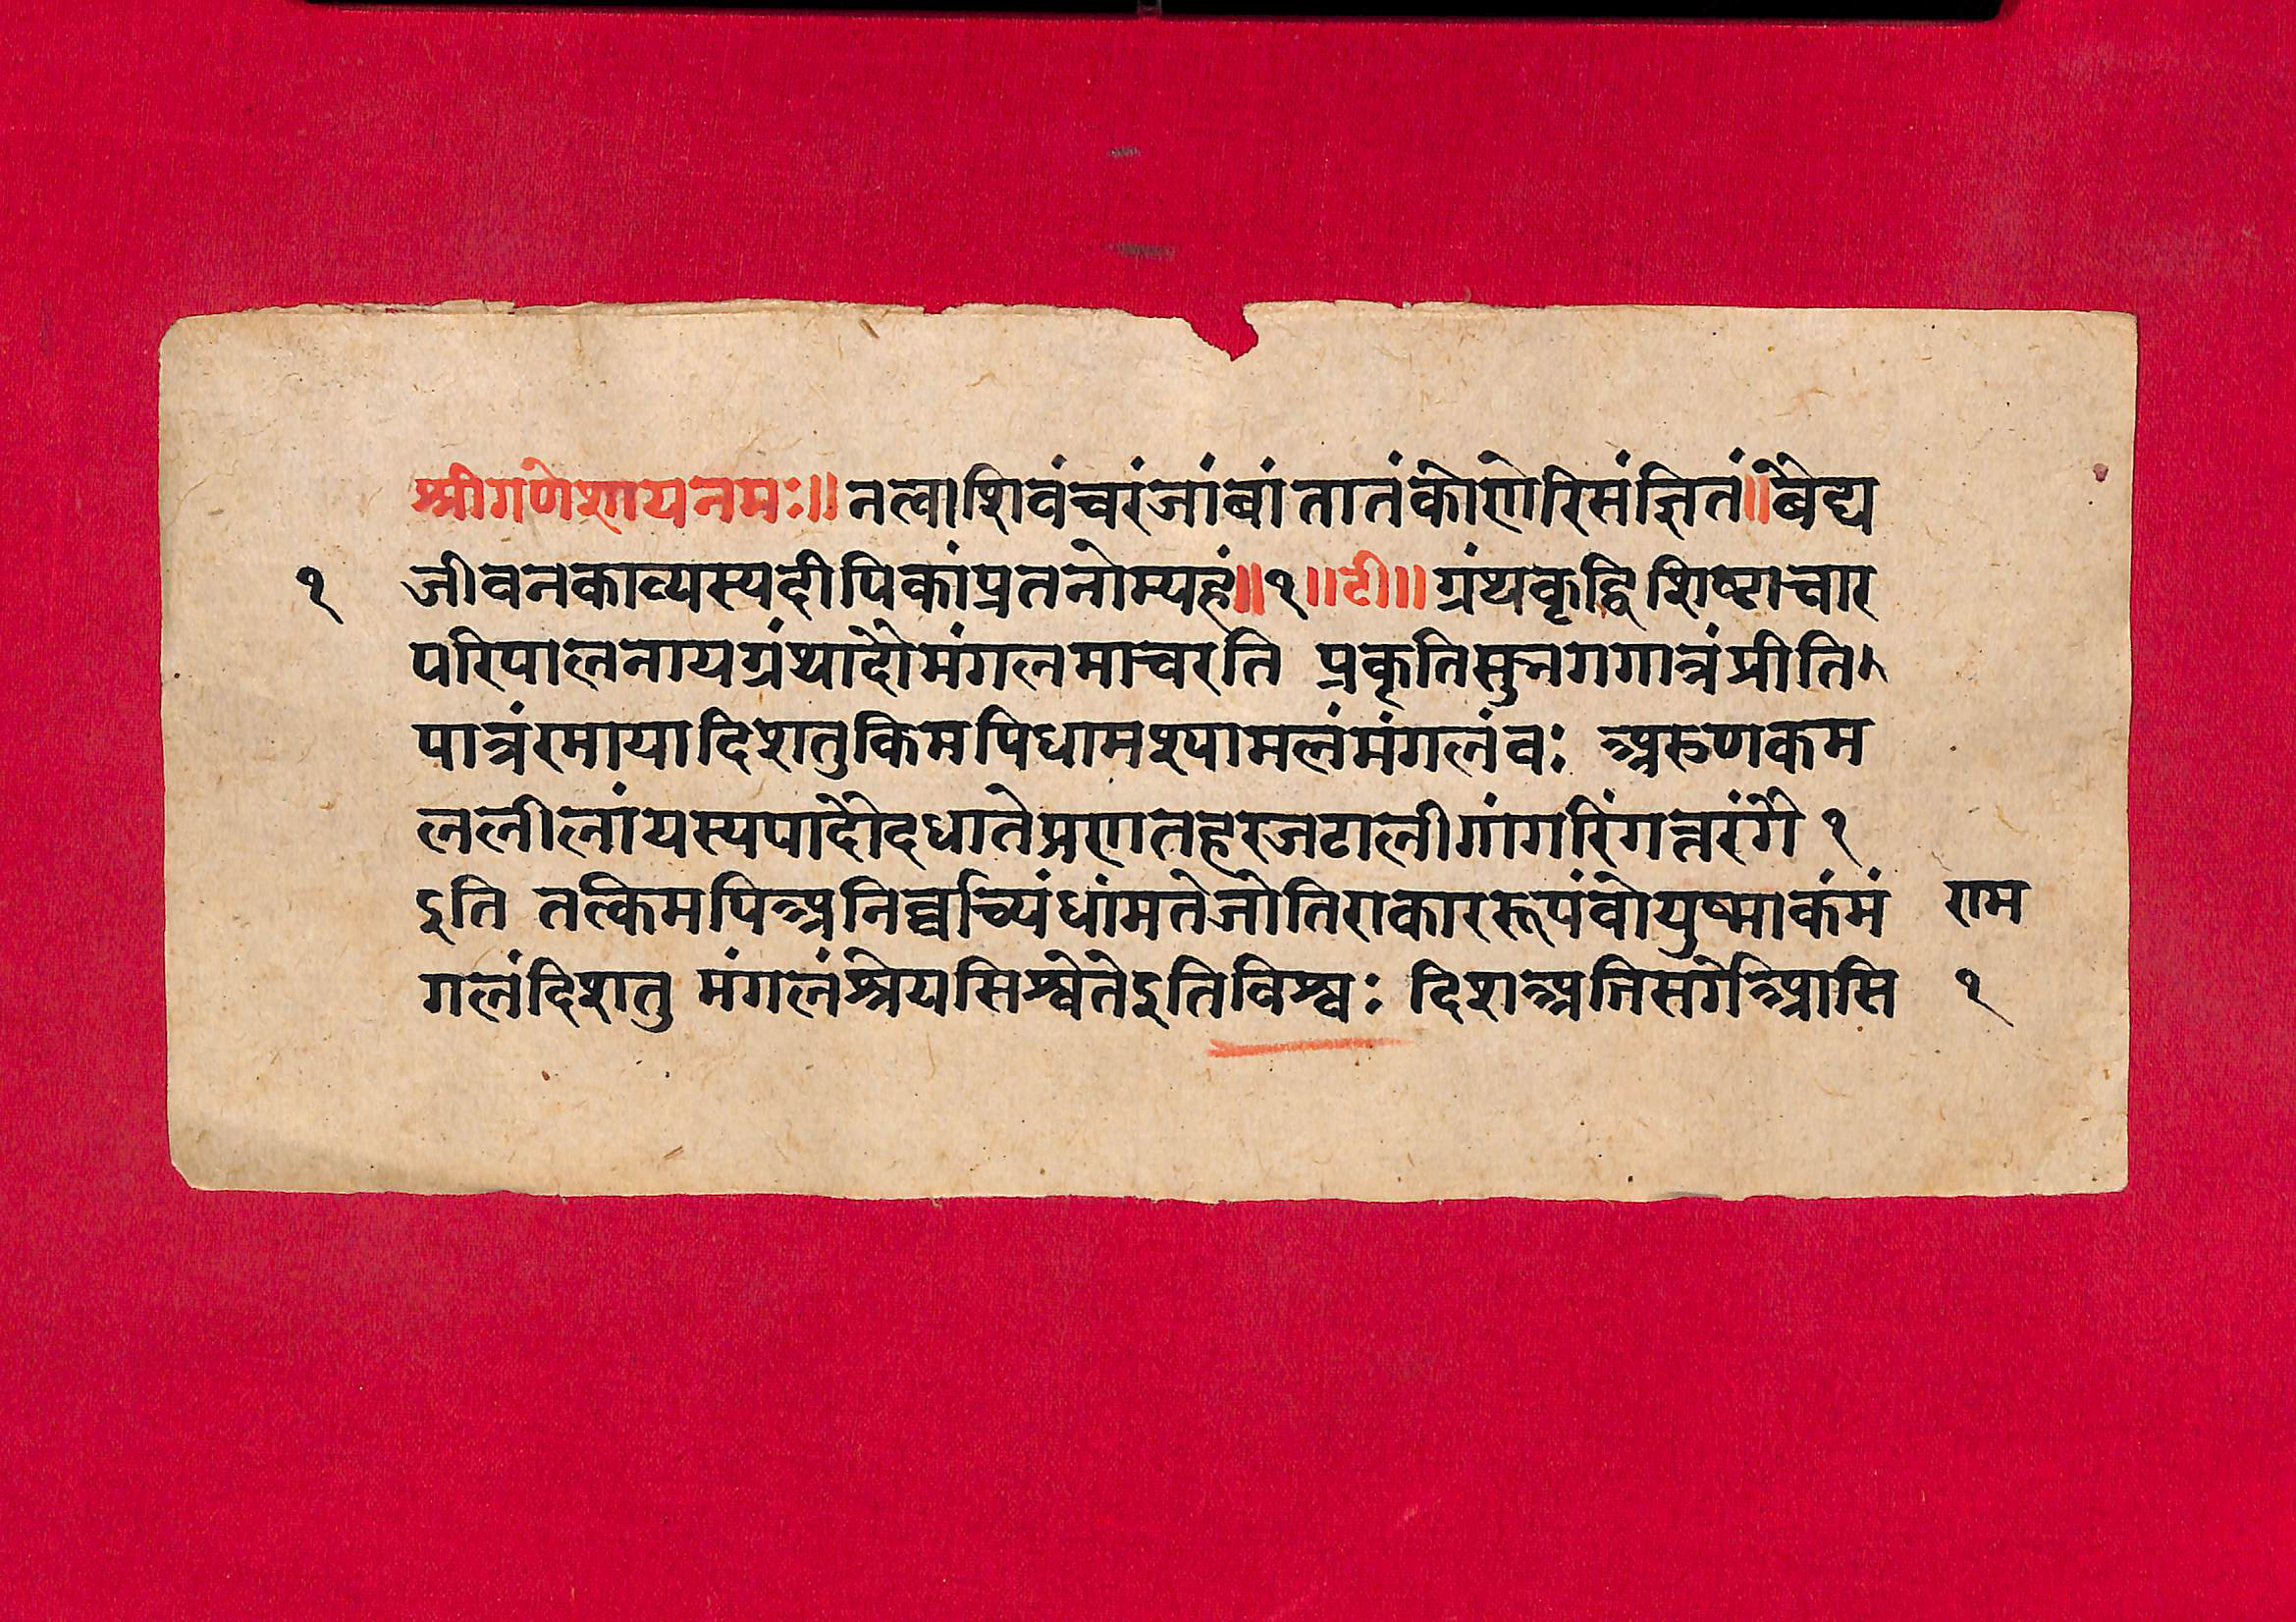 श्रीगणेशायनमः॥ नत्वाशिवंचरंजांबांतातंकोणेरिसंज्ञितं॥बैद्य
१ जीवनकाव्यस्यदीपिकांप्रतनोम्यहं॥१॥टी॥ ग्रंथकृद्विशिष्टाचार
परिपालनायग्रंथादौमंगलमाचरति प्रकृतिसुनगगात्रंप्रीति
पात्रंरमायादिशतुकिमपिधामश्यामलंमंगलंवः अरुणकम
ललीलांयस्यपादौदधातेप्रणतहरजटालीगांगरिंगत्तरंगैः १
इति तत्किमपिअनिर्व्वच्यिंधांमतेजोतिराकाररूपंवोयुष्माकंमं राम
गलंदिशतु मंगलंश्रेयसिश्वेतेइतिविश्वः दिशअतिसर्गेआसि १